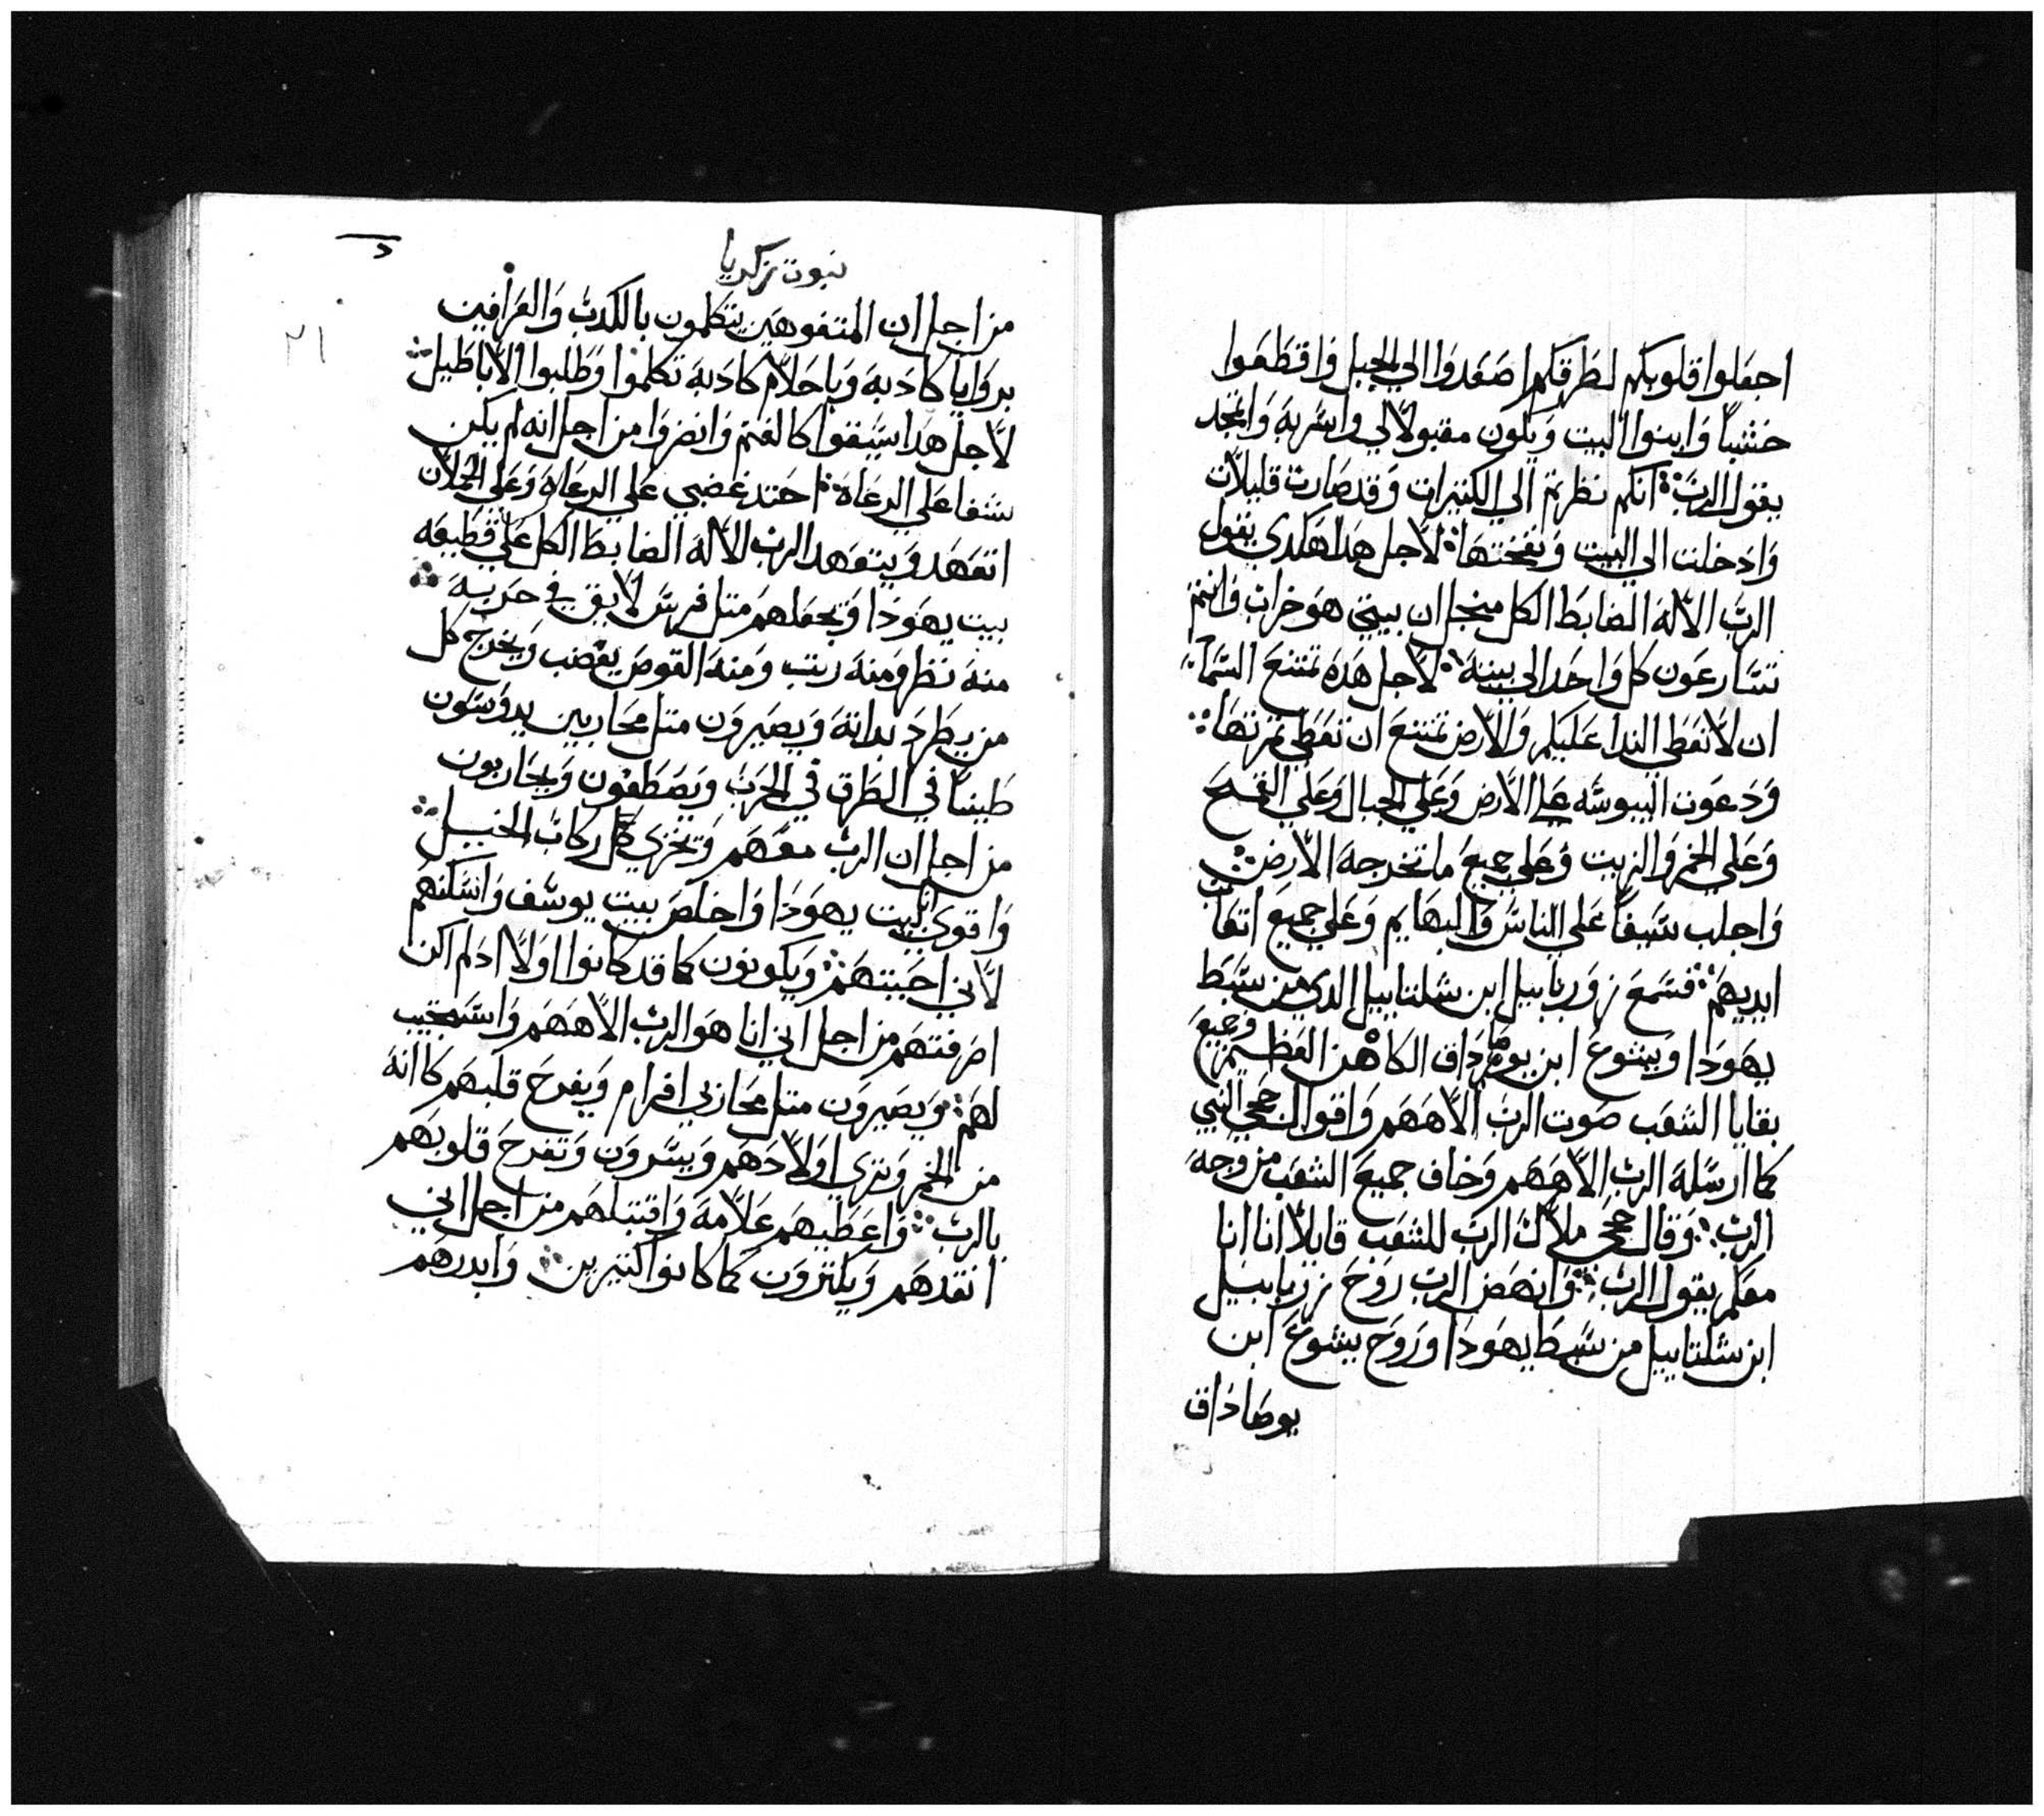 اجعلوا قلوبكم لطرقكم اصعدوا الي الجبل واقطعوا
خشباً وابنوا البيت ويكون مقبولاً لي واسر به واتمجد
يقول الرب انكم نظرتم الي الكتيرات وقد صارت قليلات
وادخلت الي البيت ونفختها لاجل هدا هكدي يقول
الرب الاله الضابط الكل منجل ان بيتي هو خراب وانتم
تتسارعون كل واحد الي بيته لاجل هده تمتنع السما
ان لا تعطي الندا عليكم والارض تمتنع ان تعطي تمرتها
ودعوت اليبوسه علي الارض وعلي الجبال وعلي القمح
وعلي الخمر والزيت وعلي جميع ما تخرجه الارض
واجلب سيفاً علي الناس والبهايم وعلي جميع اتعاب
ايديهم فسمع زوربابيل ابن شلتاييل الدي من سبط
يهودا ويشوع ابن يوصاداق الكاهن العظيم وجميع
بقايا الشعب صوت الرب الاههم واقوال حجي النبي
كما ارسله الرب الاههم وخاف جميع الشعب من وجه
الرب وقال حجي ملاك الرب للشعب قايلاً انا انا
معكم يقول الرب وانهض الرب روح زربابيل
ابن شلتاييل من سبط يهودا وروح يشوع ابن
يوصاداق
نبوت زكريا
د
٢١
من اجل ان المتفوهين يتكلمون بالكدب والعرافين
بروايا كادبه وباحلام كادبه تكلموا وطلبوا الاباطيل
لاجل هدا سيقوا كالغنم وانضروا من اجل انه لم يكن
شفا علي الرعاه احتد غضبي علي الرعاه وعلي الحملان
اتعهد ويتعهد الرب الاله الضابط الكل علي قطيعه
بيت يهودا وتجعلهم متل فرس لايق في حربه
منه نظر ومنه رتب ومنه القوس بغضب ويخرج كل
من يطرد بداته ويصيرون متل محاربين يدوسون
طيناً في الطرق في الحرب ويصطفون ويحاربون
من اجل ان الرب معهم وتخزي كل ركاب الخيل
واقوي بيت يهودا واخلص بيت يوسف واسكنهم
لاني احببتهم ويكونون كما قد كانوا اولاً اد لم اكن
اصرفتهم من اجل اني انا هو الرب الاههم واستجيب
لهم ويصيرون متل محاربي افرام ويفرح قلبهم كا انه
من الخمر وتري اولادهم ويسرون وتفرح قلوبهم
بالرب واعطيهم علامه واقتبلهم من اجل اني
انقدهم ويكترون كما كانوا كتيرين وابدرهم